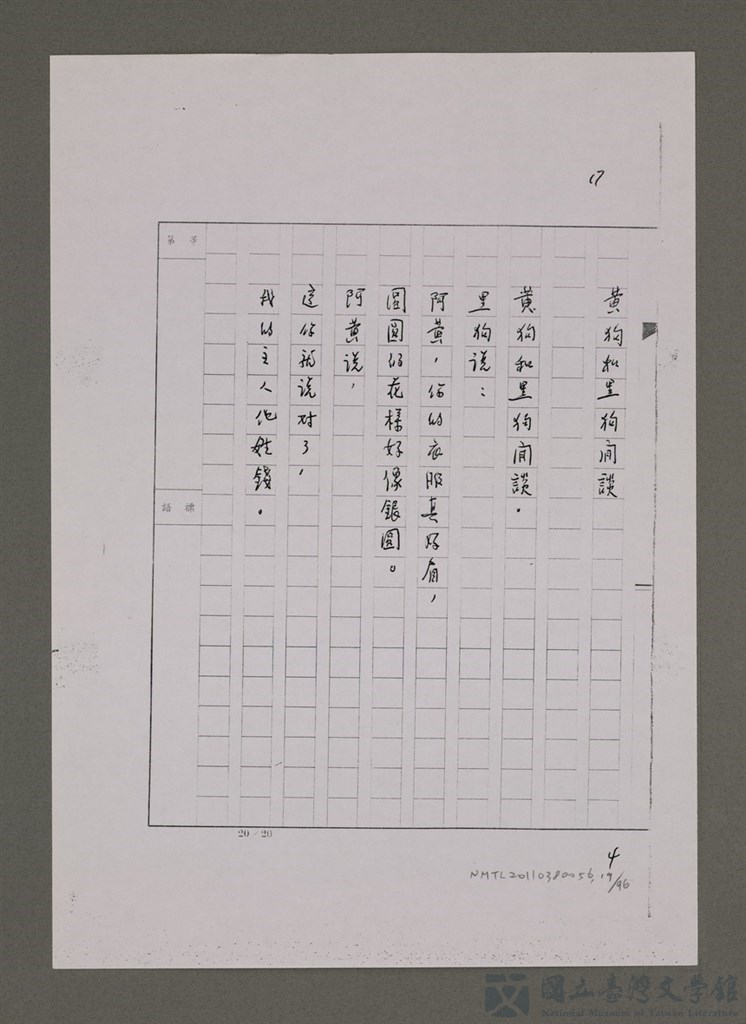 17
黄狗和里狗闲談
黄狗和里狗闲談。
里狗说：
阿黄，你的衣服真好看，
圆圆的花樣好像銀圆。
阿黄说，
這你就说对了，
我的主人他姓錢。
第 号
標語
20／20
4
NMTL20110380056, 19/96
國立臺灣文學館
National Museum of Taiwan Literature